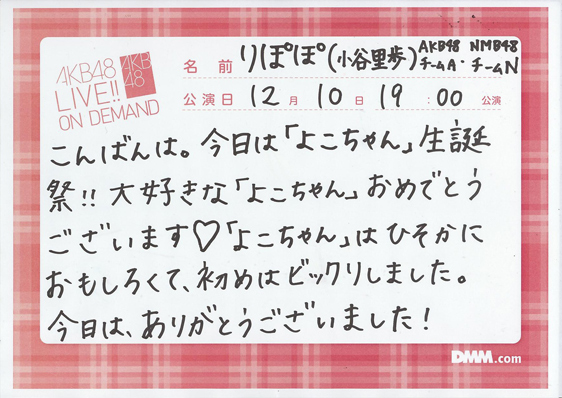 AKB48
LIVE!!
ON DEMAND
AKB
48
名前 りぽぽ(小谷里歩) AKB48 チームA・NMB48 チームN
公演日 12月 10日 19:00 公演
こんばんは。今日は「よこちゃん」生誕
祭!! 大好きな「よこちゃん」おめでとう
ございます♡「よこちゃん」はひそかに
おもしろくて、初めはビックリしました。
今日は、ありがとうございました!
DMM.com